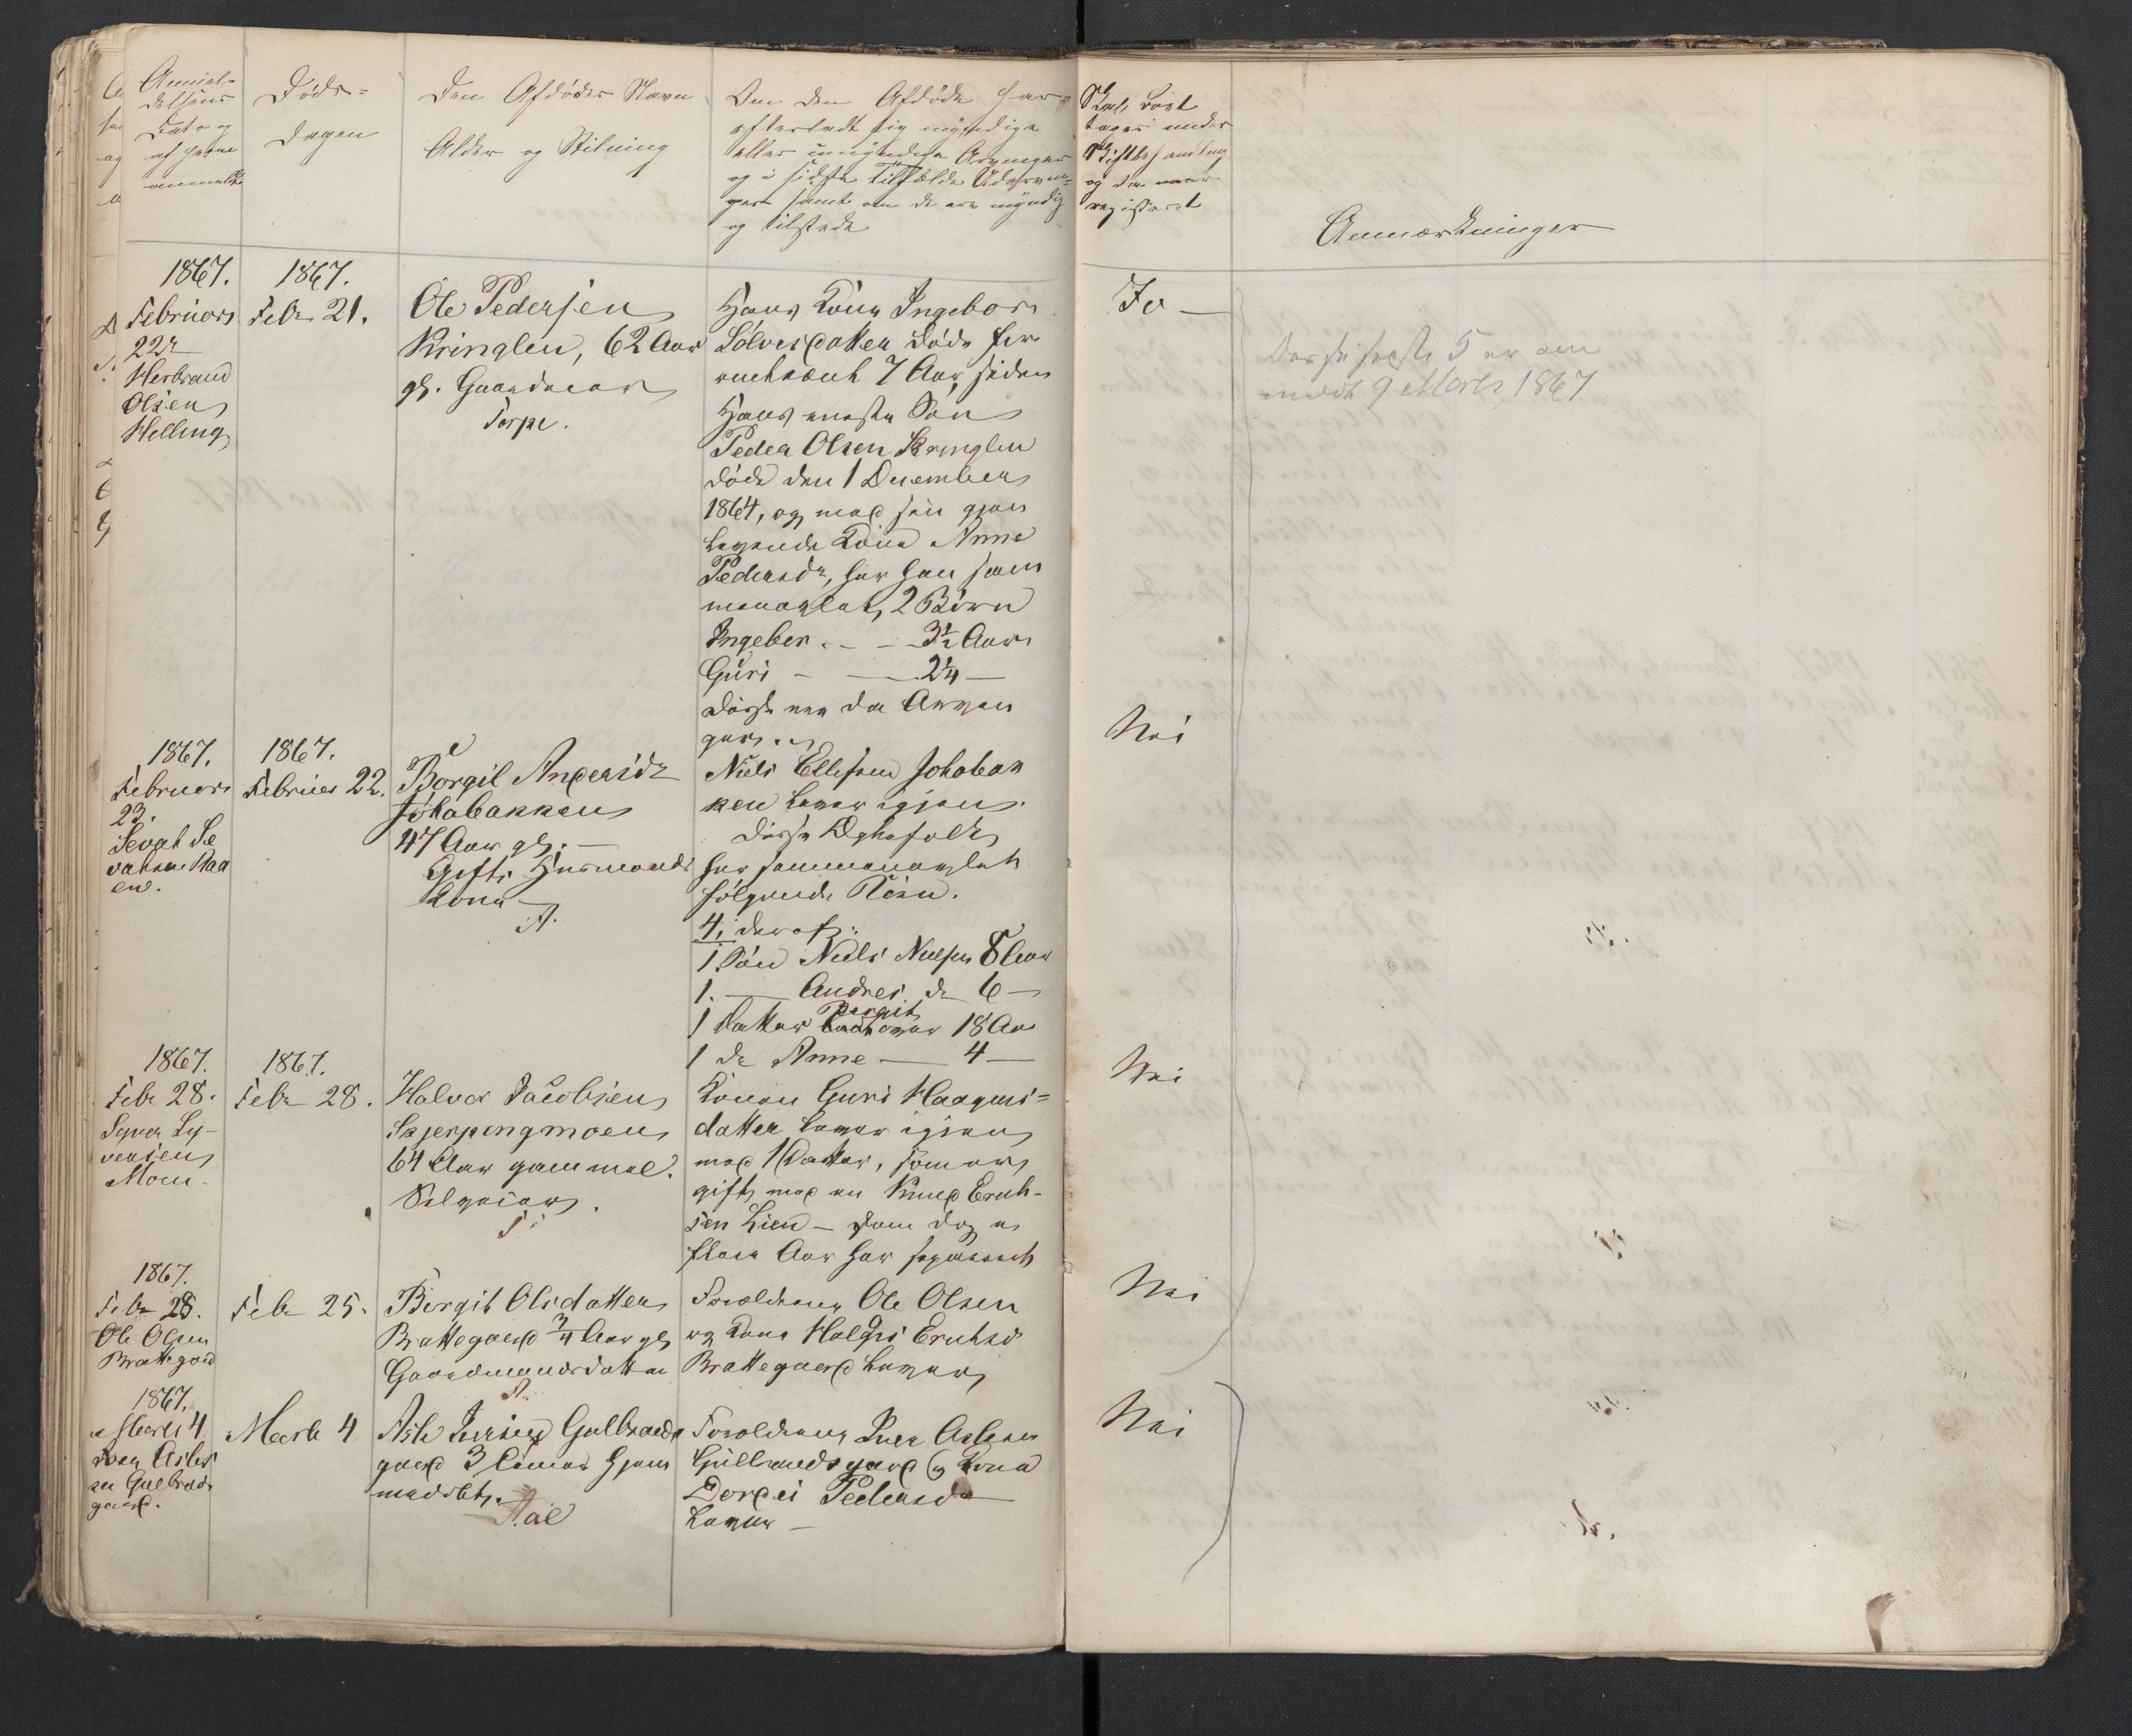 Anmel-
delsens
Dato og
af hvem
anmeldt
Døds-
dagen
Den Afdødes Navn
Alder og Stilning
Om den Afdøde har
efterladt sig myndige
eller umyndige Arvinger
og i sidste Tilfælde Udarvin-
ger samt om de ere myndig
og tilstede
Skal Boet
tages under
Skiftbehandling
og da naar
registeret
Anmærkninger
1867.
Februars
22de
Herbrand
Olsen
Helling
1867.
Febr 21.
Ole Pedersen
Kringlen, 62 Aar
gl. Gaardmand
Torpe.
Hans Kone Ingebor
Sølvesdatter døde for
omtrent 7 Aar siden
Hans eneste Søn
Peder Olsen Kringlen
døde den 1 December
1864, og med sin gjen
levende Kone Anne
Pedersdr, har han sam
menavlet, 2 Børn
Ingebor - - 3½ Aar
Guri - - 2¼ -
disse ere da Arvin
ger.
Jo -
Disse første 5 er an
meldt 9 Marts 1867
1867.
Februars
23.
Sevat Se
vatsen Haa
en.
1867.
Februar 22.
Borgil Andersdr
Johabakken
47 Aar gl. -
Gift, Husmands
Kone -
A.
Niels Ellefsen Johabak
ken Lever igjen.
disse Ægtefolk
har sammenavlet
følgende Børn.
4; deraf:
1. Søn Niels Nielsen 8 Aar
1. - Andres do 6 -
Bergit
1 Datter 18 Aar
1 do Anne - 4 -
Nei
1867.
Febr 28.
Syver Sy-
versen
Moen
1867.
Febr 28.
Halvor Jacobsen
Skjerpingmoen
64 Aar gammel.
Selveier.
Konen Guri Haagens-
datter Lever igjen
med 1 Datter, som er
gift med en Knud Erik-
sen Lien - som dog i
flere Aar har separeret
Nei
1867.
Febr 28.
Ole Olsen
Brattegard
Febr 25.
Birgit Olsdatter
Brattegaard ¾ Aar gl
Gaardmandsdatter
A.
Forældrene Ole Olsen
og Kone Holgjer Eriksd
Brattegaard Lever
Nei
1867.
Marts 4
Iver Asles
en Gulbrands
gaard.
Marts 4
Asle Iversen Gulbrands
gaard 3 Timer Hjem
medøbt.
Aal
Forældrene Iver Aslesen
Gulbrandsgard og Kone
Dordei Pedersdr
Lever -
Nei